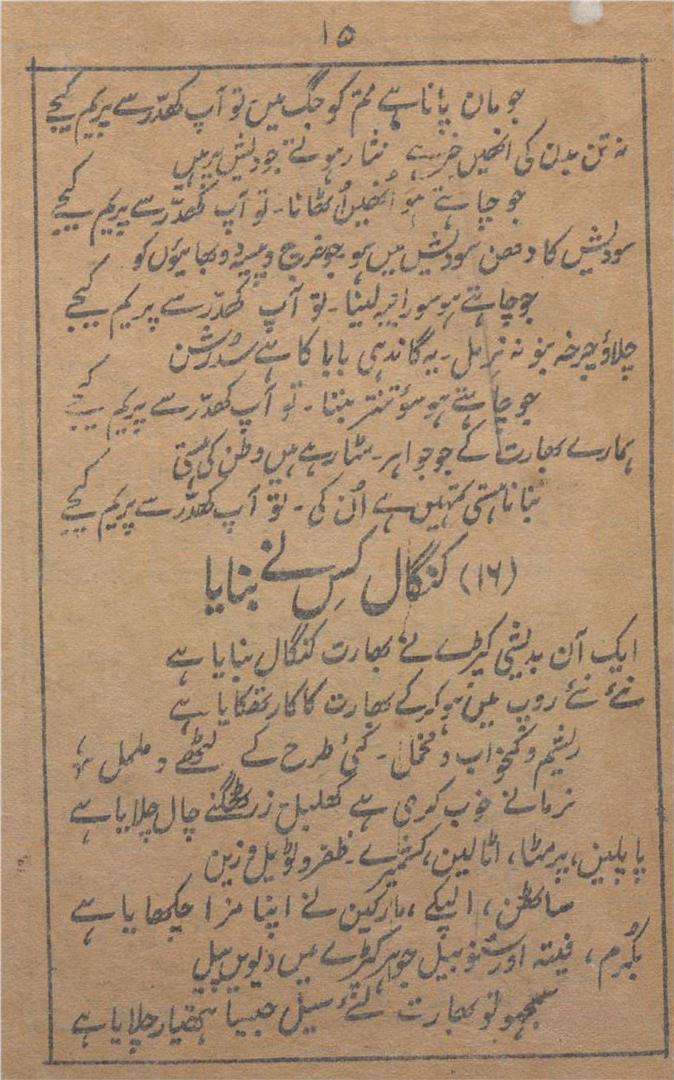 ۱۵
جو مان پانا ہے تم کو جگ میں تو آپ کھدّر سے پریم کیجے
نہ تن بدن کی انھیں خبر ہے نثار ہوتے جو دیش پر ہیں
جو چاہتے ہو اُنھیں اُٹھانا۔ تو آپ کھدّر سے پریم کیجے
سودیش کا دھن سودیش میں ہو۔ جو خرچ وبھائیوں کو
جو چاہتے ہو سوراجیہ لینا۔ تو آپ کھدّر سے پریم کیجے
چلاؤ چرخہ بنو نہ نربل۔ یہ گاندھی بابا کا ہے سُدرشن
جو چاہتے ہو سوتنتر بننا۔ تو آپ کھدّر سے پریم کیجے
ہمارے بھارت کے جو جواہر۔ مٹا رہے ہیں وطن کی ہستی
بنانا ہستی تمہیں ہے اُن کی۔ تو آپ کھدّر سے پریم کیجے
(۱۶) کنگال کِس نے بنایا
ایک آن بدیشی کپڑے نے بھارت کنگال بنایا ہے
نئے نئے روپ میں ہو کر کے بھارت کا کار تھکایا ہے
ریشم و کمخواب و مخمل۔ کئی طرح کے لٹھے و ململ
نرما نے خوب کری ہے کھلبل زر ٹھگنے چال چلایا ہے
پاپلین، پرمٹا، اٹالین، کشمیرے۔ ظفر و لوئیل و زین
ساٹن، الپکے، مارکین نے اپنا مزا چکھایا ہے
بکرم، فیتہ اور بیل جو ہر کپڑے میں دیویں میل
سمجھو تو بھارت لئے سیل جیسا ہتھیار چلایا ہے